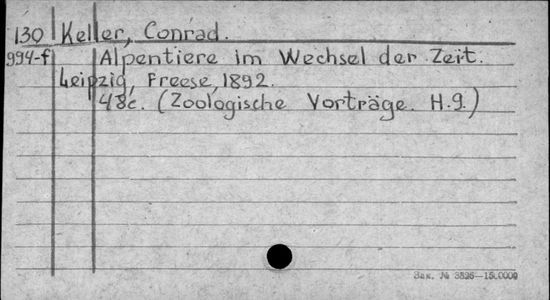 130 Keller, Conrad.
994-f Alpentiere im Wechsel der Zeit.
Leipzig, Freese, 1892.
48c. (Zoologische Vorträge. H.9.)
Зак. № 3826—15.0000